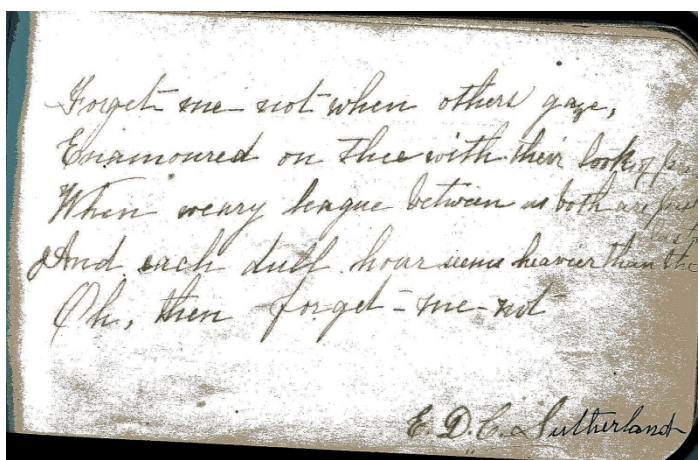 Forget me not when others gaze,
Enamoured on thee with their look of
When weary league between us both are
And each dull hour seems heavier than the
Oh, then forget-me-not
E. D. C. Sutherland